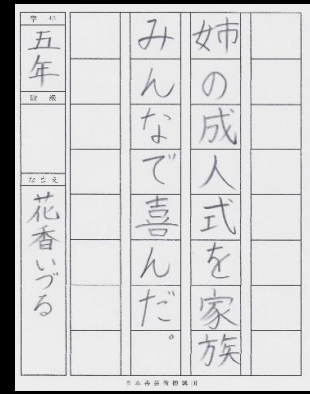 姉の成人式を家族
みんなで喜んだ。
学年
五年
段級
なまえ
花香いづる